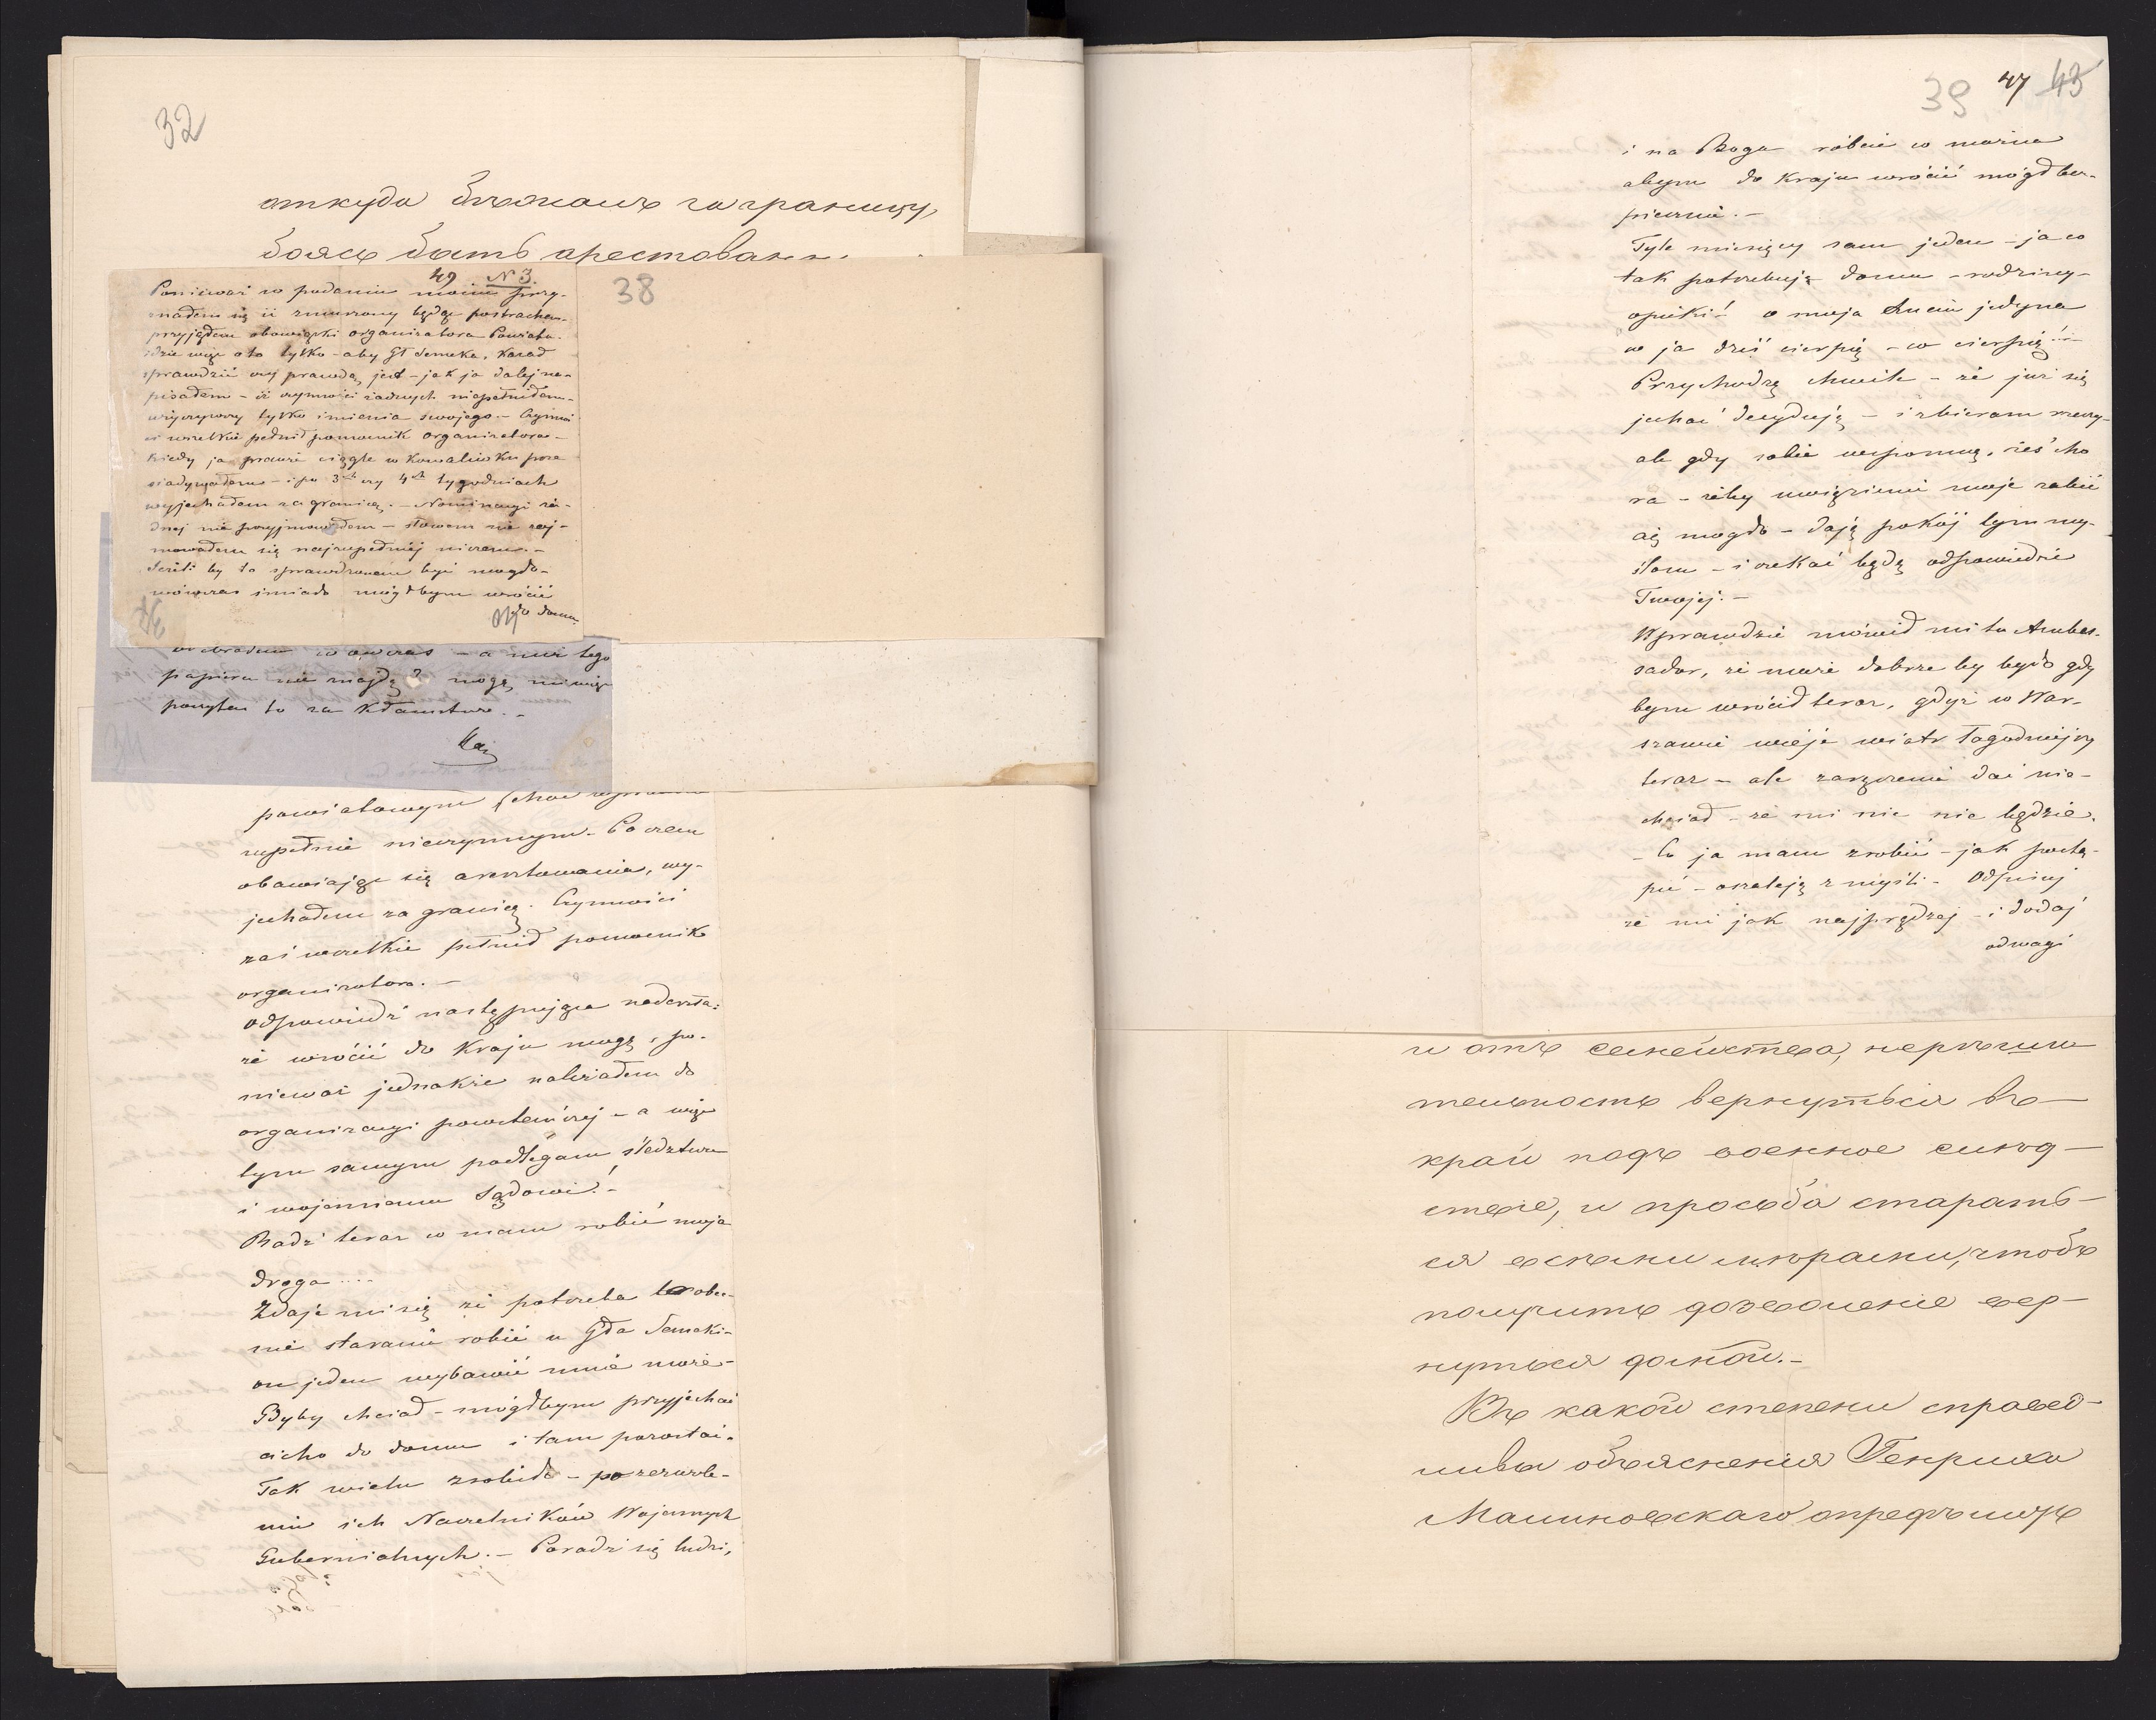 32
откуда бѣжалъ за границу,
боясь быть арестован
49 N 3.
Ponieważ w podaniu moim przy-
znałem się iż zmuszony będąc postrachem
przyjąłem obowiązki organizatora Powiatu.
idzie więc o to tylko – aby Gł Semeka, kazał
sprawdzić czy prawdą jest – jak ja dalej na-
pisałem – iż czynności żadnych niepełniłem –
użyczywszy tylko imienia swojego. – Czynnoś
ci wszelkie pełnił pomocnik organizatora –
kiedy ja prawie ciągle w Kowaliwku prze
siadywałem – i po 3ch czy 4ch tygodniach
wyjechałem za granicę. – Nominacyi ża-
dnej nie przyjmowałem – słowem nie zaj-
mowałem się najzupełniej niczem. –
Jeżeli by to sprawdzonem być mogło –
wówczas śmiało mógłbym wrócić
do domu.
38
wówczas – a nuż tego
papieru nie znajdą? mogą mi więc
poczytać to za kłamstwo. –
34
powiatowym (choć
zupełnie nieczynnym – Poczem
obawiając się aresztowania, wy-
jechałem za granicę. Czynności
zaś wszelkie pełnił pomocnik
organizatora. –
Odpowiedź następująca nadeszła:
że wrócić do Kraju mogę, po-
nieważ jednakże należałem do
organizacyi powstańczej – a więc
tym samym podlegam śledztwu
i wojennemu Sądowi! –
Radź teraz co mam robić moja
droga ....
Zdaje mi się że potrzeba to obec-
nie staranie robić u Gła Semeki –
on jeden wybawić mnie może –
Byby chciał – mógłbym przyjechać
cicho do domu i tam pozostać.
Tak wielu zrobiło – po zezwole-
niu ich Naczelników Wojennych
Gubernialnych. – Poradź się ludzi,
39 47 43
i na Boga róbcie co można
abym do Kraju wrócić mógł bez-
piecznie. –
Tyle miesięcy sam jeden – ja co
tak potrzebuję domu – rodziny –
opieki! o moja Anciu jedyna
co ja dziś cierpię – co cierpię! –
Przychodzą chwile – że już się
jechać decyduję – i zbieram rzeczy –
ale gdy sobie wspomnę, żeś cho
ra – żeby uwięzienie moje zabić
cię mogło – daję pokój tym my-
ślom – i czekać będę odpowiedzi
Twojej. –
Wprawdzie mówił mi tu Ambas-
sador, że może dobrze by było gdy
bym wrócił teraz, gdyż w War-
szawie wieje wiatr łagodniejszy
teraz – ale zaręczenia dać nie –
chciał – że mi nic nie będzie.
– Co ja mam zrobić – jak postą-
pić – oszaleję z myśli – Odpisuj
że mi jak najprędzej – i dodaj
odwagi
и отъ семейства, нерѣши
тельность вернуться въ –
край подъ военное слѣд –
ствіе, и просьба старать –
ся всѣми мѣрами, чтобъ
получить дозволеніе вер –
нуться домой. –
Въ какой степени справед –
ливы объясненія Генриха
Малиновскаго опредѣлитъ